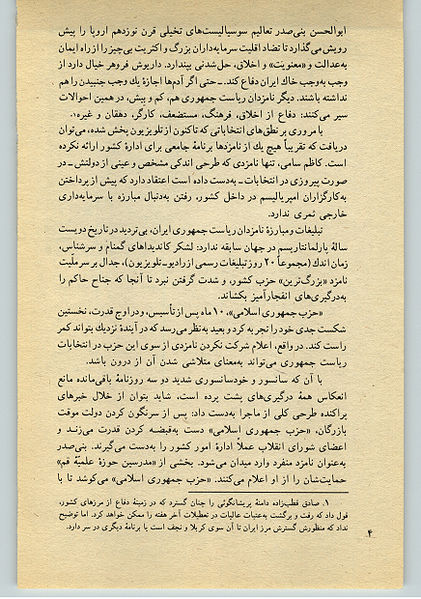 ابوالحسن بنی‌صدر تعالیم سوسیالیست‌های تخیلی قرن نوزدهم اروپا را پیش
رویش می‌گذارد تا تضاد اقلیت سرمایه‌داران بزرگ و اکثریت بی‌چیز را از راه ایمان
به‌عدالت و «معنویت» و اخلاق، حل‌شدنی بپندارد. داریوش فروهر خیال دارد از
وجب به‌وجب خاك ایران دفاع کند. ـ حتی اگر آدم‌ها اجازهٔ يك وجب جنبیدن را هم
نداشته باشند. دیگر نامزدان ریاست جمهوری هم، کم و بیش، در همین احوالات
سیر می‌کنند: دفاع از اخلاق، فرهنگ، مستضعف، کارگر، دهقان و غیره۱.
با مروری بر نطق‌های انتخاباتی که تاکنون از تلویزیون پخش شده، می‌توان
دریافت که تقریباً هیچ يك از نامزدها برنامهٔ جامعی برای ادارهٔ کشور ارائه نکرده
است. کاظم سامی، تنها نامزدی که طرحی اندکی مشخص و عینی از دولتش ـ در
صورت پیروزی در انتخابات ـ به‌دست داده است اعتقاد دارد که پیش از پرداختن
به‌کارگزاران امپریالیسم در داخل کشور، رفتن به‌دنبال مبارزه با سرمایه‌داری
خارجی ثمری ندارد.
تبلیغات و مبارزهٔ نامزدان ریاست جمهوری ایران، بی‌تردید در تاریخ دویست
سالهٔ پارلمانتاریسم در جهان سابقه ندارد: لشکر کاندیداهای گمنام و سرشناس،
زمان اندك (مجموعاً ۲۰ روز تبلیغات رسمی از رادیو ـ تلویزیون)، جدال بر سر ملّیت
نامزد «بزرگ‌ترین» حزب کشور، و شدت گرفتن نبرد تا آنجا که جناح حاکم را
به‌درگیری‌های انفجارآمیز بکشاند.
«حزب جمهوری اسلامی»، ۱۰ ماه پس از تأسیس، و در اوج قدرت، نخستین
شکست جدی خود را تجربه کرد و بعید به‌نظر می‌رسد که در آیندهٔ نزدیك بتواند کمر
راست کند. در واقع، اعلام شرکت نکردن نامزدی از سوی این حزب در انتخابات
ریاست جمهوری می‌تواند به‌معنای متلاشی شدن آن از درون باشد.
با آن که سانسور و خودسانسوری شدید دو سه روزنامهٔ باقی‌مانده مانع
انعکاس همهٔ درگیری‌های پشت پرده است، شاید بتوان از خلال خبرهای
پراکنده طرحی کلی از ماجرا به‌دست داد: پس از سرنگون کردن دولت موقت
بازرگان، «حزب جمهوری اسلامی» دست به‌قبضه کردن قدرت می‌زند و
اعضای شورای انقلاب عملاً ادارهٔ امور کشور را به‌دست می‌گیرند. بنی‌صدر
به‌عنوان نامزد منفرد وارد میدان می‌شود. بخشی از «مدرسین حوزهٔ علمیّهٔ قم»
حمایت‌شان را از او اعلام می‌کنند. «حزب جمهوری اسلامی» می‌کوشد تا با
۱. صادق قطب‌زاده دامنهٔ پریشانگوئی را چنان گسترد که در زمینهٔ دفاع از مرزهای کشور،
قول داد که رفت و برگشت به‌عتبات عالیات در تعطیلات آخر هفته را ممکن خواهد کرد. اما توضیح
نداد که منظورش گسترش مرز ایران تا آن سوی کربلا و نجف است یا برنامهٔ دیگری در سر دارد.
۴